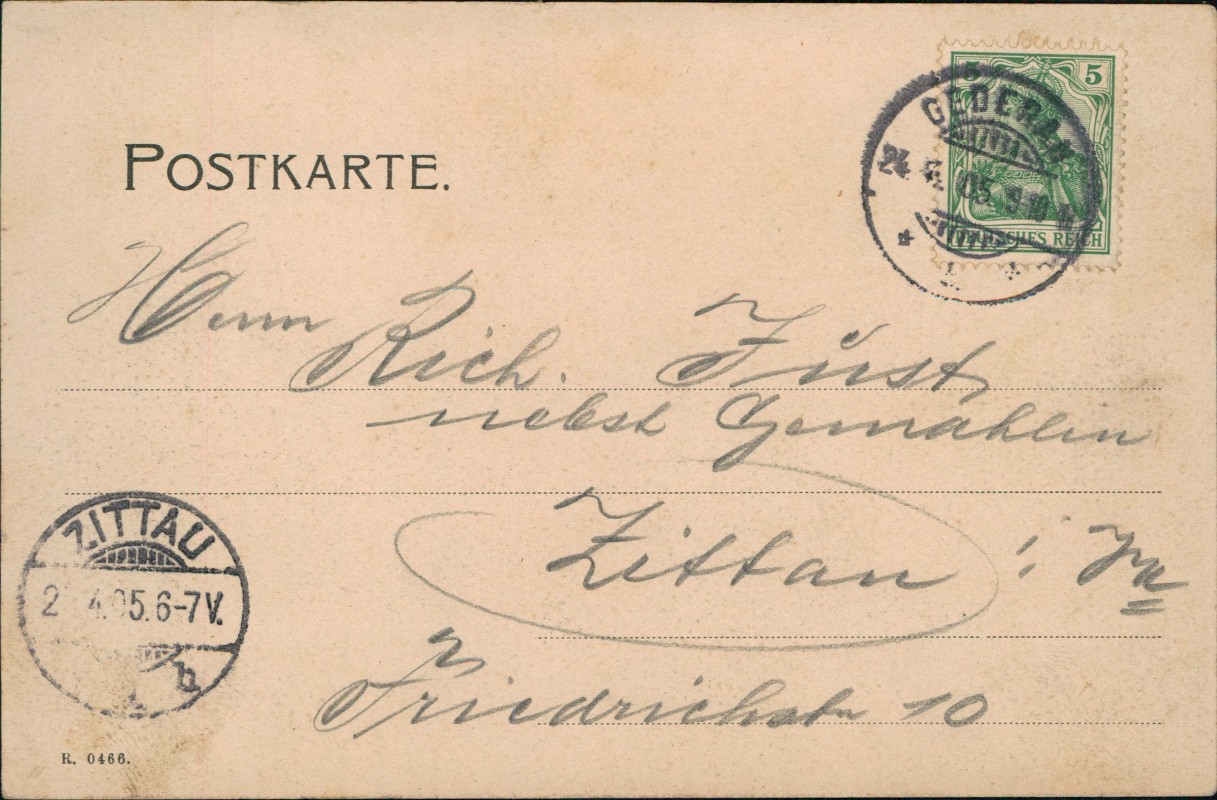 POSTKARTE.
5 5
DEUTSCHES REICH
OEDERAN
24. 4. 05. 9-10 N.
Herrn Rich. Just
nebst Gemahlin
Zittau i. Sa
Friedrichstr 10
ZITTAU
2 4.05.6-7V.
b
R. 0466.